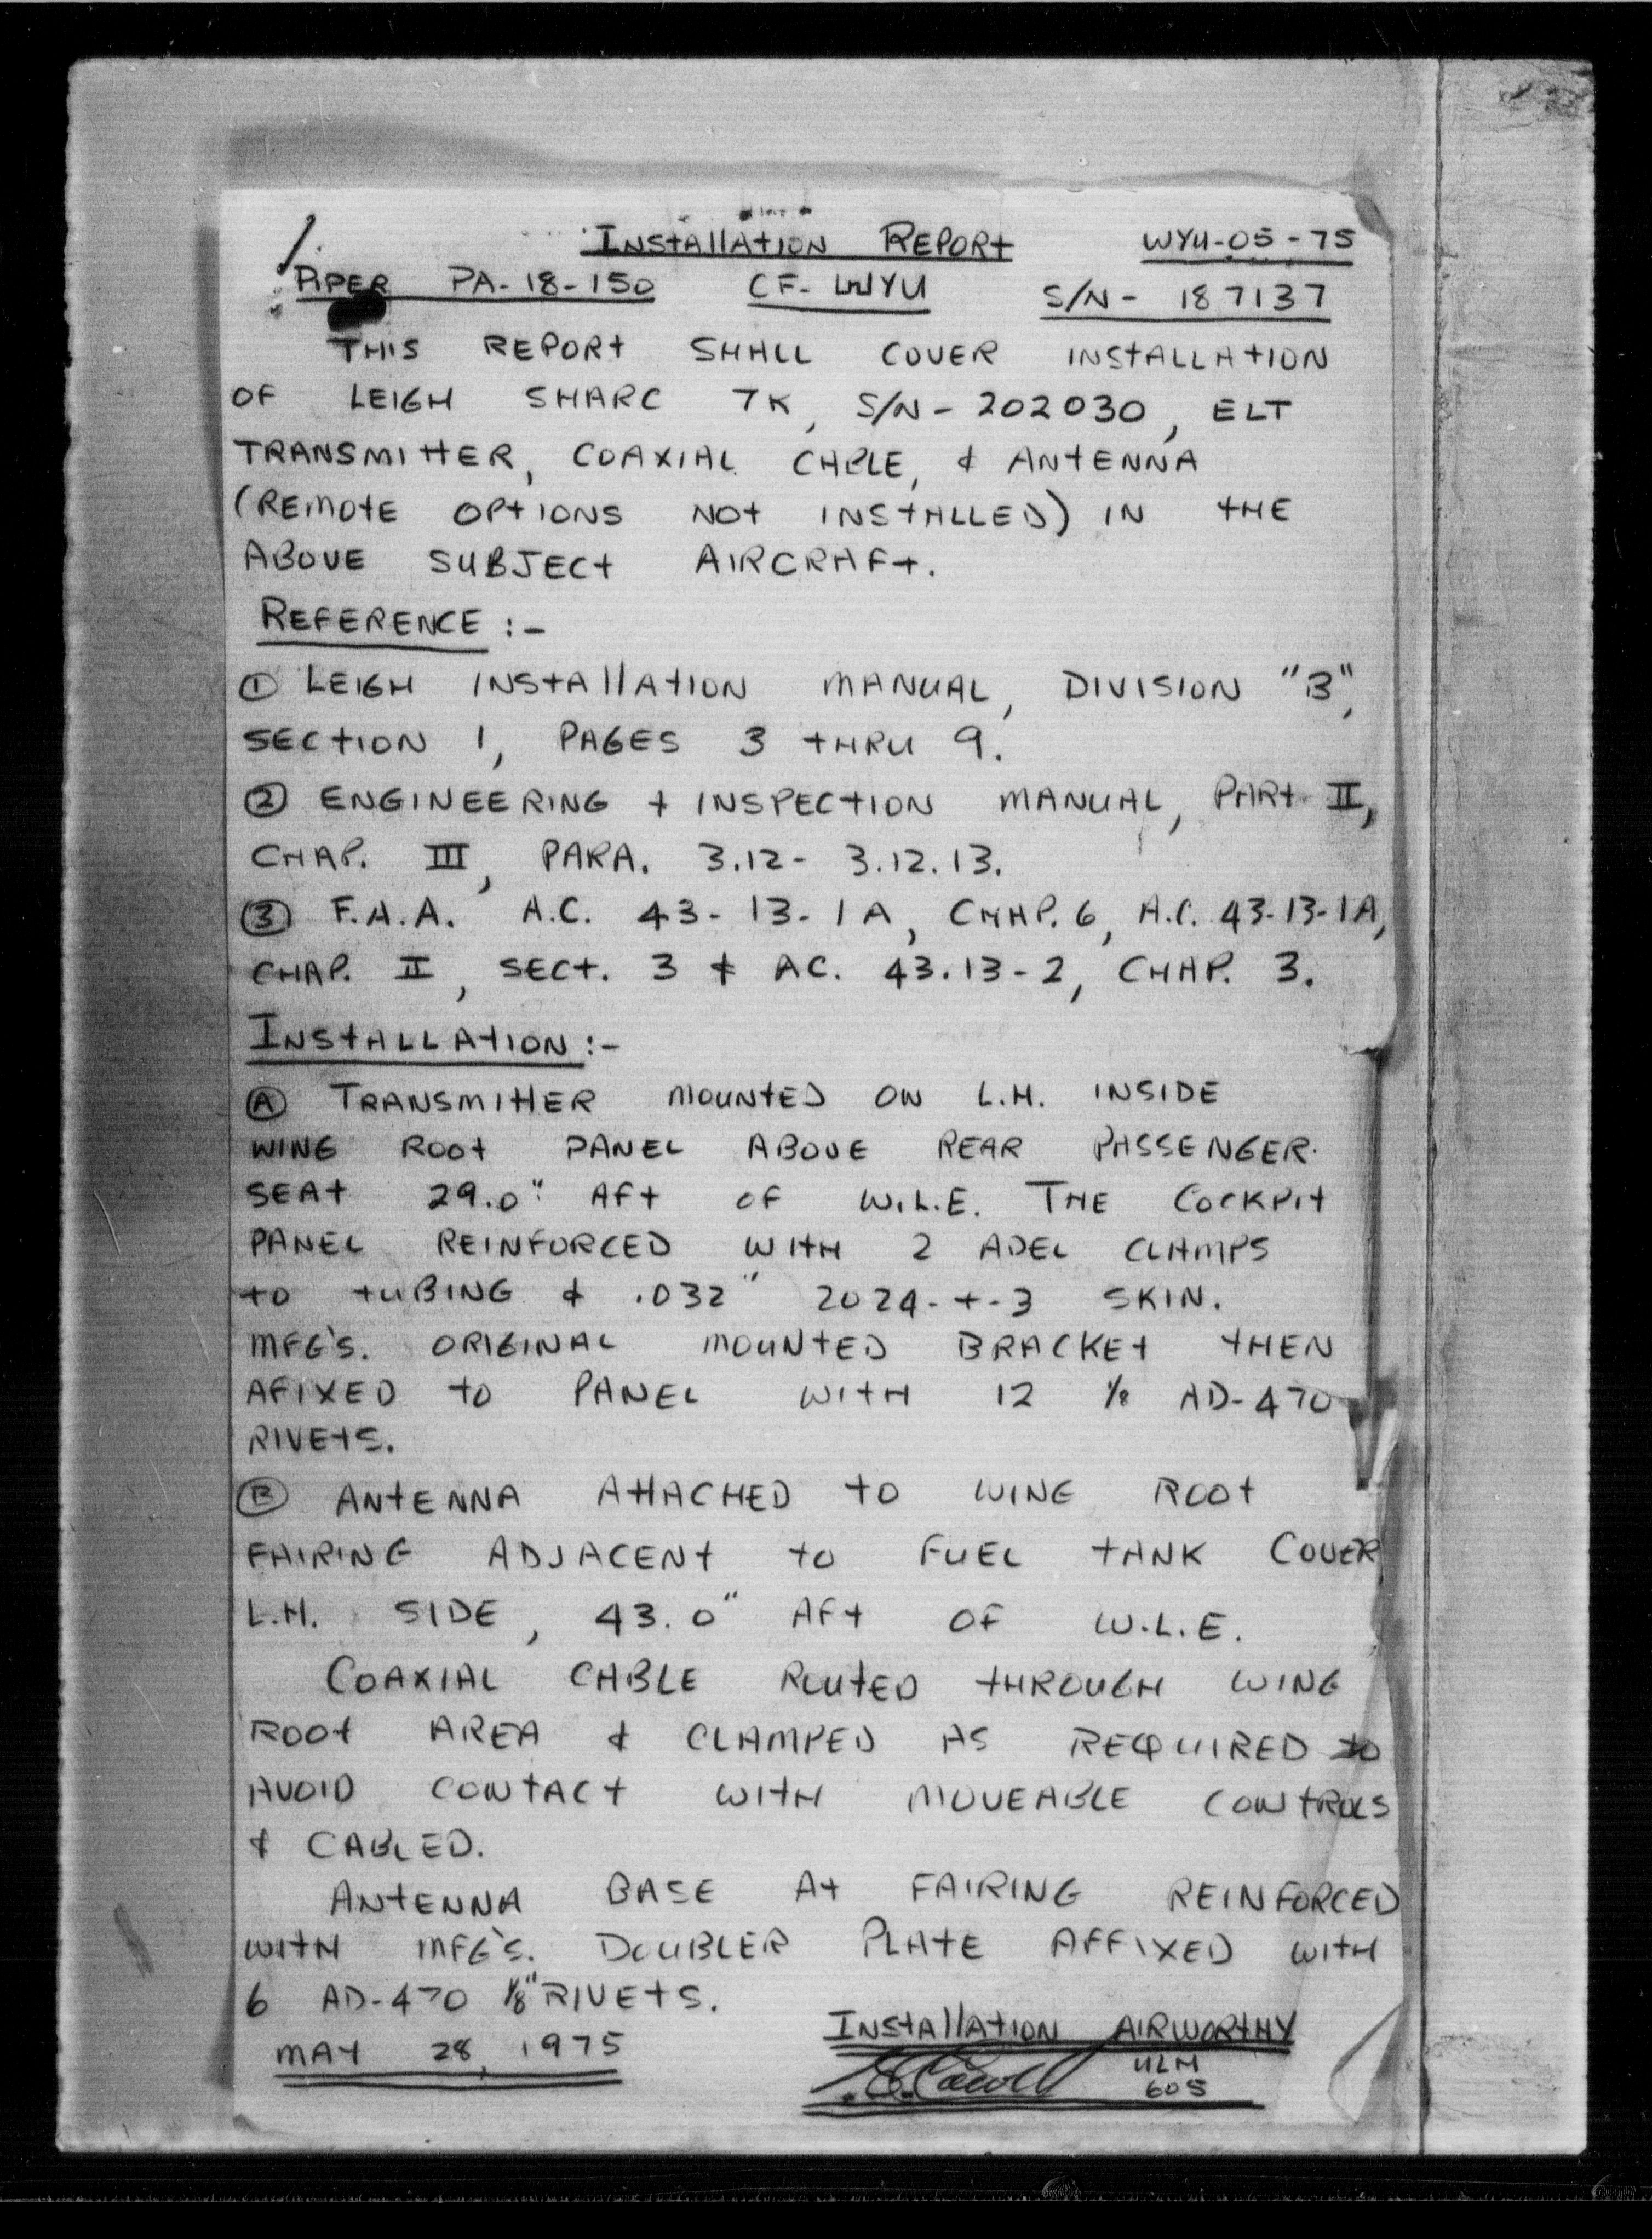 1.
INSTALLATION REPORT WYU-05-75
PIPER PA-18-150 CF-WYU S/N- 187137
THIS REPORT SHALL COVER INSTALLATION
OF LEIGH SHARC 7K, S/N-202030, ELT
TRANSMITTER, COAXIAL CABLE, & ANTENNA
(REMOTE OPTIONS NOT INSTALLED) IN THE
ABOVE SUBJECT AIRCRAFT.
REFERENCE :-
① LEIGH INSTALLATION MANUAL, DIVISION "B",
SECTION 1, PAGES 3 THRU 9.
② ENGINEERING & INSPECTION MANUAL, PART II,
CHAP. III, PARA. 3.12- 3.12.13.
③ F.A.A. A.C. 43-13-1A, CHAP. 6, A.C. 43-13-1A,
CHAP. II, SECT. 3 & AC. 43.13-2, CHAP. 3.
INSTALLATION :-
Ⓐ TRANSMITTER MOUNTED ON L.H. INSIDE
WING ROOT PANEL ABOVE REAR PASSENGER
SEAT 29.0" AFT OF W.L.E. THE COCKPIT
PANEL REINFORCED WITH 2 ADEL CLAMPS
TO TUBING & .032" 2024-T-3 SKIN.
MFG'S. ORIGINAL MOUNTED BRACKET THEN
AFIXED TO PANEL WITH 12 1/8 AD-470
RIVETS.
Ⓑ ANTENNA ATTACHED TO WING ROOT
FAIRING ADJACENT TO FUEL TANK COVER
L.H. SIDE, 43.0" AFT OF W.L.E.
COAXIAL CABLE ROUTED THROUGH WING
ROOT AREA & CLAMPED AS REQUIRED TO
AVOID CONTACT WITH MOVEABLE CONTROLS
& CABLED.
ANTENNA BASE AT FAIRING REINFORCED
WITH MFG'S. DOUBLER PLATE AFFIXED WITH
6 AD-470 1/8" RIVETS.
MAY 28, 1975 INSTALLATION AIRWORTHY
605